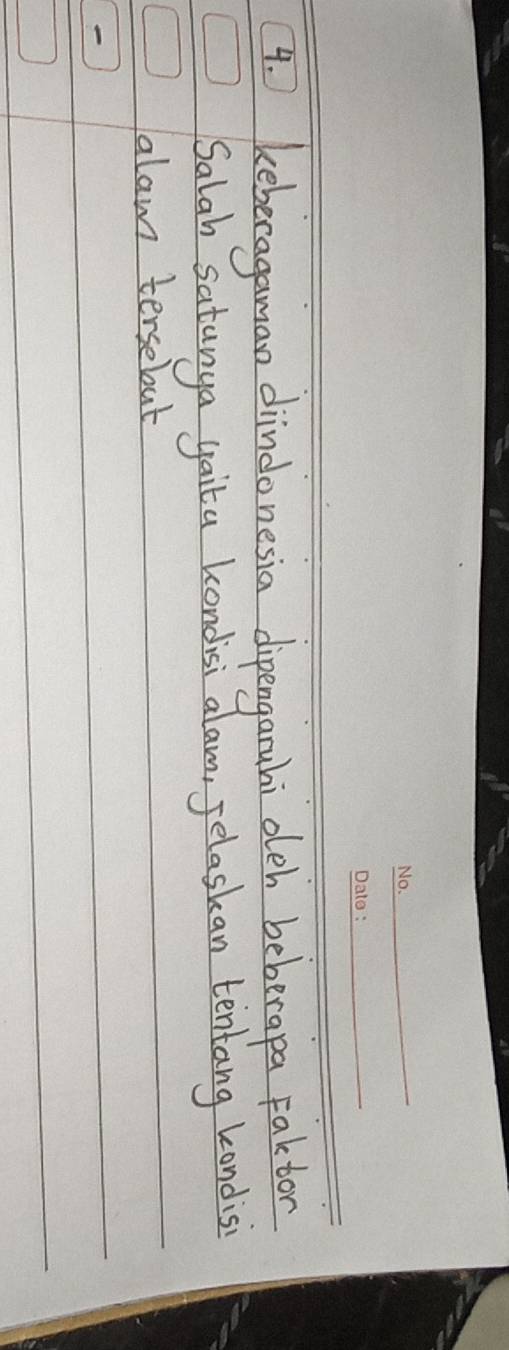 No.
Date :
4. keberagaman diindonesia dipengaruhi oleh beberapa Faktor
Salah satunya yaitu kondisi alam, Jelaskan tentang kondisi
alam tersebut
-